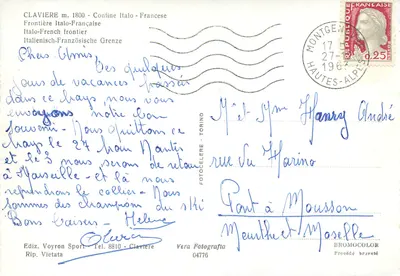 CLAVIERE m. 1800 - Confine Italo - Francese
Frontière Italo-Française
Italo-French frontier
Italienisch-Französische Grenze
Chers Amis,
Ces quelques
jours de vacances passés
dans ce pays nous vous
envoyons notre bon
souvenir. Nous quittons ce
pays le 27
et le 3 nous serons de retour
à Marseille - et là nous
reprendrons le collier - Nous
sommes des champions du ski
Bons baisers - Hélène
Ediz. Voyron Sport - Tel. 8810 - Claviere
Rip. Vietata
FOTOCELERE - TORINO
Vera Fotografia
04776
MONTGEN
17
27-
196
HAUTES-ALP
REPUBLIQUE FRANÇAISE
0,25F
Mr et Mme Hanry André
rue du
Pont à Mousson
Meurthe et Moselle
BROMOCOLOR